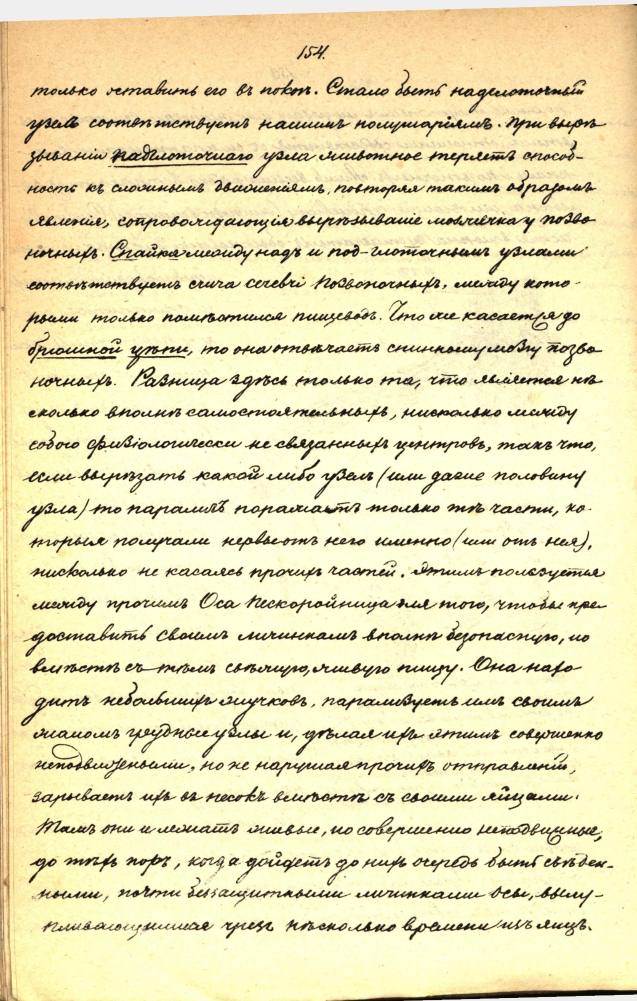 154.
только оставить его въ покоѣ. Стало быть надглоточный
узелъ соотвѣтствуетъ нашимъ полушаріямъ. При вырѣ
зываніи надглоточнаго узла животное теряетъ способ-
ность къ сложнымъ движеніямъ, повторяя такимъ образомъ
явленія, сопровождающія вырѣзываніе мозжечка у позво
ночныхъ. Спайка между надъ и под-глоточнымъ узлами
соотвѣтствуетъ позвоночныхъ, между кото-
рыми только помѣстился пищеводъ. Что же касается до
брюшной цѣпи, то она отвѣчаетъ спинному мозгу позво
ночныхъ. Разница здѣсь только та, что является нѣ
сколько вполнѣ самостоятельныхъ, нисколько между
собою физіологически не связанныхъ центровъ, такъ что,
если вырѣзать какой либо узелъ (или даже половину
узла) то параличъ поражаетъ только тѣ части, ко-
торыя получали нервы отъ него именно (или отъ нея),
нисколько не касаясь прочихъ частей. Этимъ пользуется
между прочимъ Оса Пескоройница для того, чтобы пре
доставить своимъ личинкамъ вполнѣ безопасную, но
вмѣстѣ съ тѣмъ свѣжую, живую пищу. Она нахо
дитъ небольшихъ жучковъ, парализуетъ имъ своимъ
жаломъ грудные узлы и, дѣлая ихъ этимъ совершенно
неподвижными, но не нарушая прочихъ отправленій,
зарываетъ ихъ въ песокъ вмѣстѣ съ своими яйцами.
Тамъ они и лежатъ живые, но совершенно неподвижные,
до тѣхъ поръ, когда дойдетъ до нихъ очередь быть съѣден-
ными, почти беззащитными личинками осы, вылу-
пливающимися чрезъ нѣсколько времени изъ яицъ.